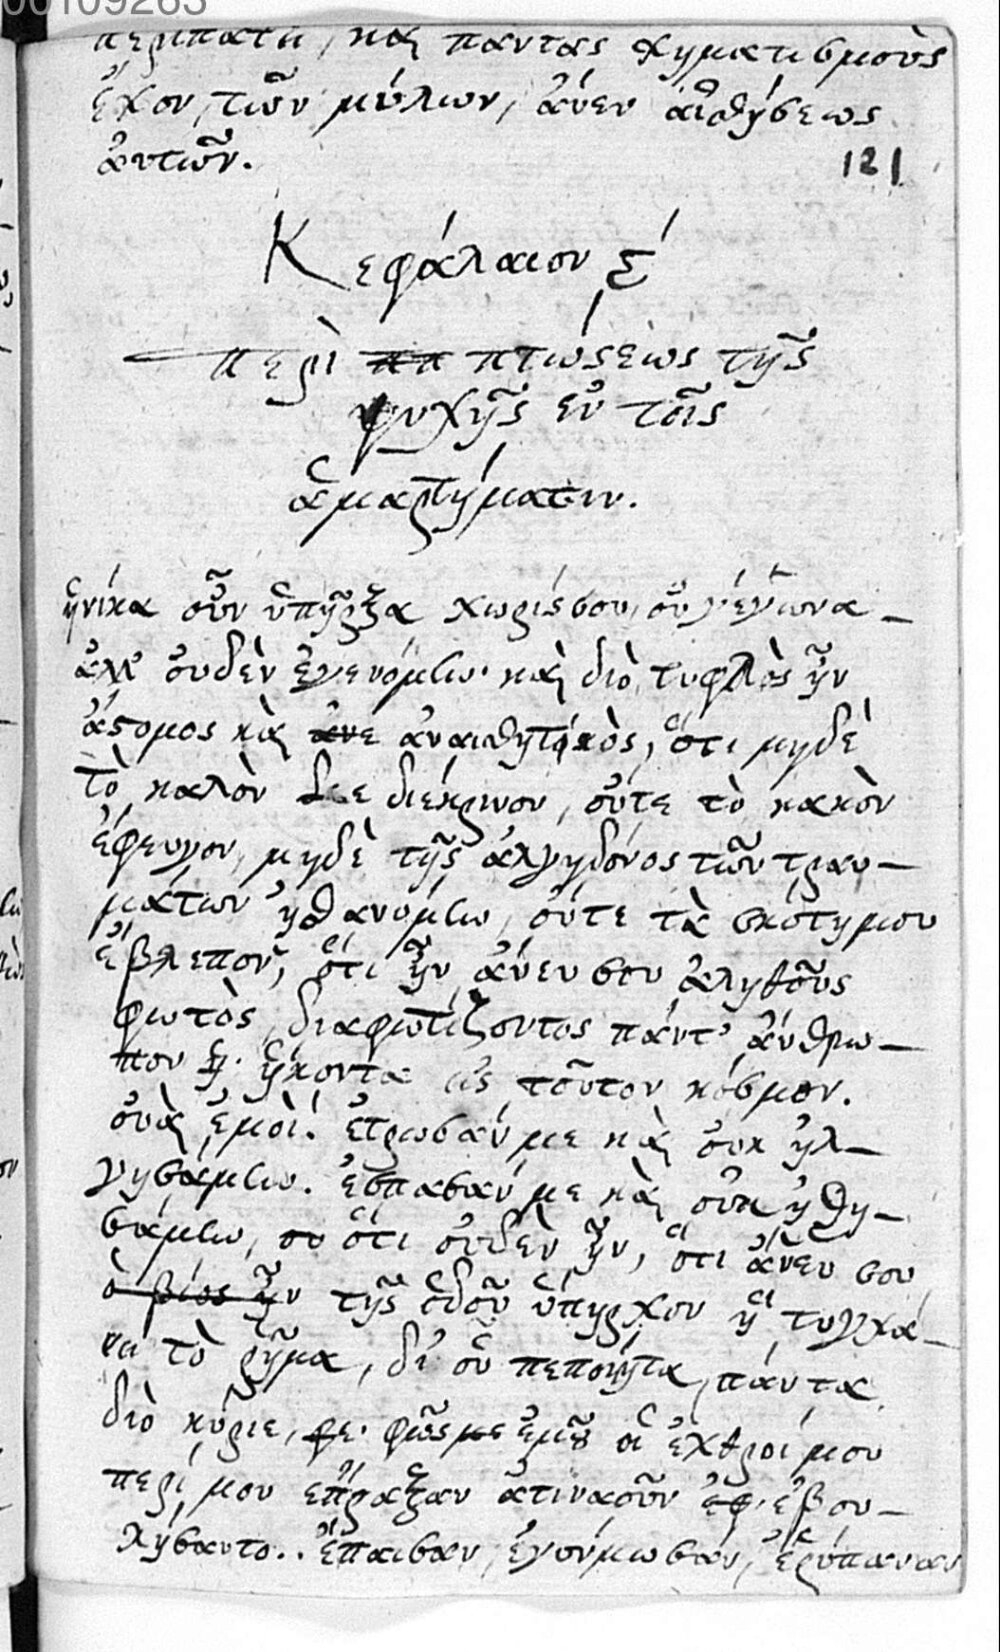 00109263
περιπατεῖ, καὶ πάντας χηματισμοὺς
ἔχον, τῶν μύλων, ἄνευ αἰσθήσεως
ἀυτῶν.
121
Κεφάλαιον ς́
περὶ ππ πτώσεως τῆς
ψυχῆς εν τοῖς
ἁμαρτήμασιν.
ἡνίκα οὖν ὑπῆρξα χωρίς σου, οὐ γέγωνα
ἀλλ' ὀυδὲν ἐγενόμην· καὶ διὸ τυφλὸς ἦν
ἄστομος καὶ ἀνε ἀναισθητικὸς, ὅτι μηδὲ
τὸ καλὸν διέκρινον, οὔτε τὸ κακὸν
ἔφευγον, μηδὲ τῆς ἀλγηδόνος τῶν τραυ-
μάτων ἠσθανόμην, οὔτε τὰ σκότη μου
ἔβλεπον, ὅτι ἦν ἄνευ σου ἀληθοῦς
φωτὸς, διαφωτίζοντος πάντ' ἄνθρω-
πον ἥκοντα εἰς τοῦτον κόσμον.
ὀυαὶ ἐμοὶ. ἔτρωσάν με καὶ ὀυκ ἠλ-
γησάμην. ἔσπασάν με καὶ οὐκ ἠσθη-
σάμην, ὅτι ὀυδὲν ἦν, ὅτι ἄνευ σου
ὁ βίος ἦν τῆς ὁδοῦ ὑπῆρχον ᾗ τυγχά-
νει τὸ ῥῆμα, δι' οὗ πεποίηται πάντα
διὸ κύριε, φε· φῶς με ἐμοῦ οἱ ἐχθροί μου
περί μου ἔπραξαν ἅτινα οὖν ἐφ· ἐβου-
λήσαντο.. ἔπαισαν, ἐγύμνωσαν, ἐρύπαναν